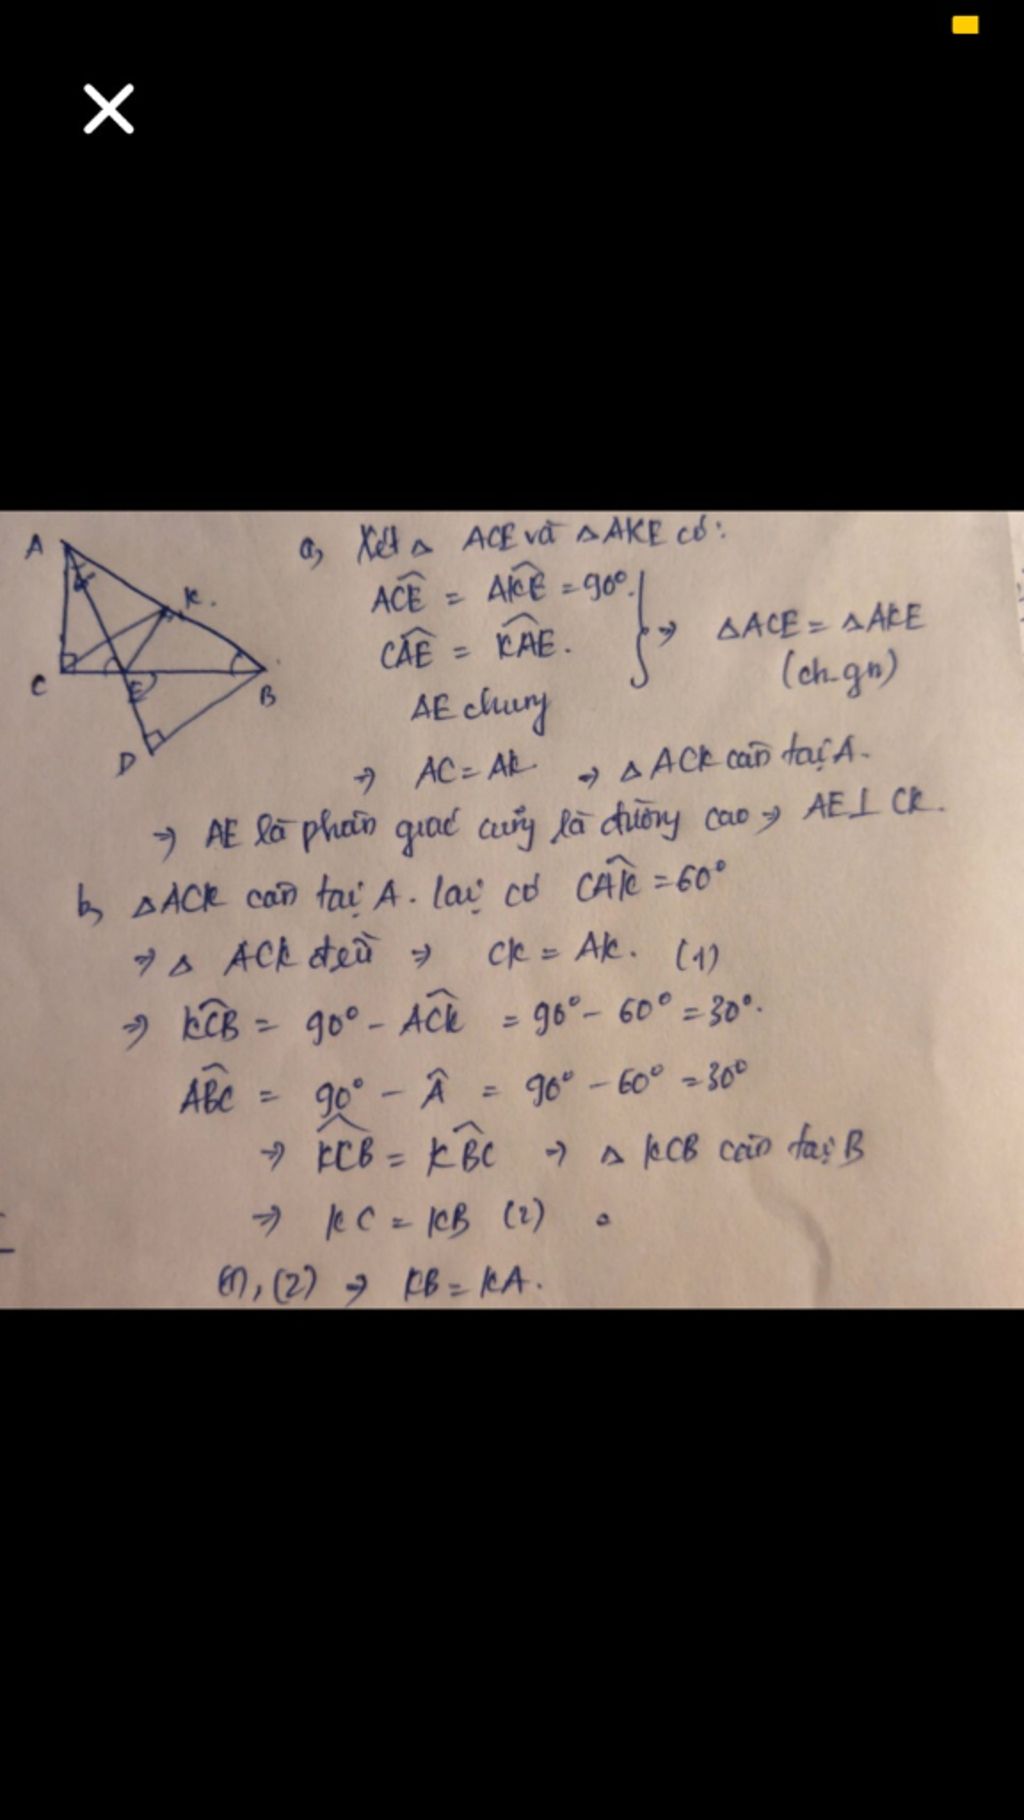 A
K
C
E
B
D
a, Xét Δ ACE và Δ AKE có:
ACÊ = AKÊ = 90°.
CAÊ = KAÊ.
AE chung
⇒ ΔACE = ΔAKE
(ch-gn)
⇒ AC = AK ⇒ Δ ACK cân tại A.
⇒ AE là phân giác cũng là đường cao ⇒ AE⊥CK.
b, ΔACK cân tại A. lại có CAK̂ = 60°
⇒ Δ ACK đều ⇒ CK = AK. (1)
⇒ KCB̂ = 90° - ACK̂ = 90° - 60° = 30°.
ABĈ = 90° - Â = 90° - 60° = 30°
⇒ KCB̂ = KBĈ ⇒ Δ KCB cân tại B
⇒ KC = KB (2)
(1), (2) ⇒ KB = KA.